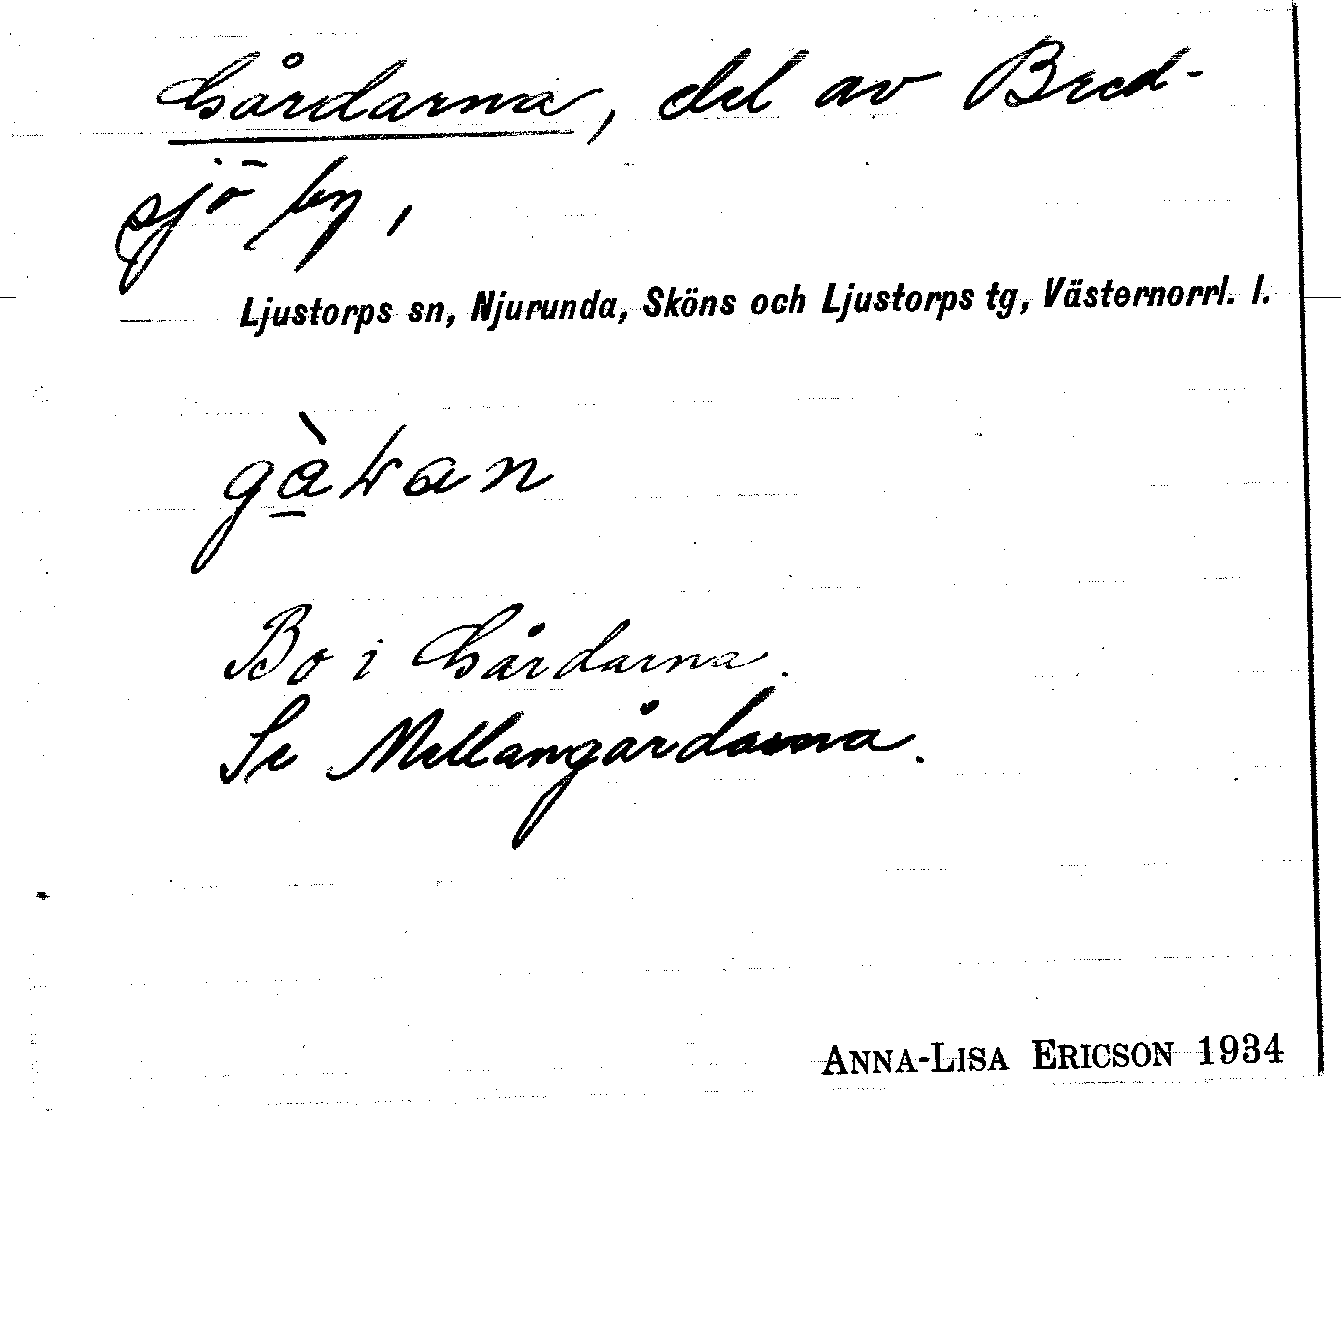 Gårdarna, del av Bred-
sjö by,
Ljustorps sn, Njurunda, Sköns och Ljustorps tg, Västernorrl. l.
Bo i Gårdarna.
Se Mellangårdarna.
ANNA-LISA ERICSON 1934